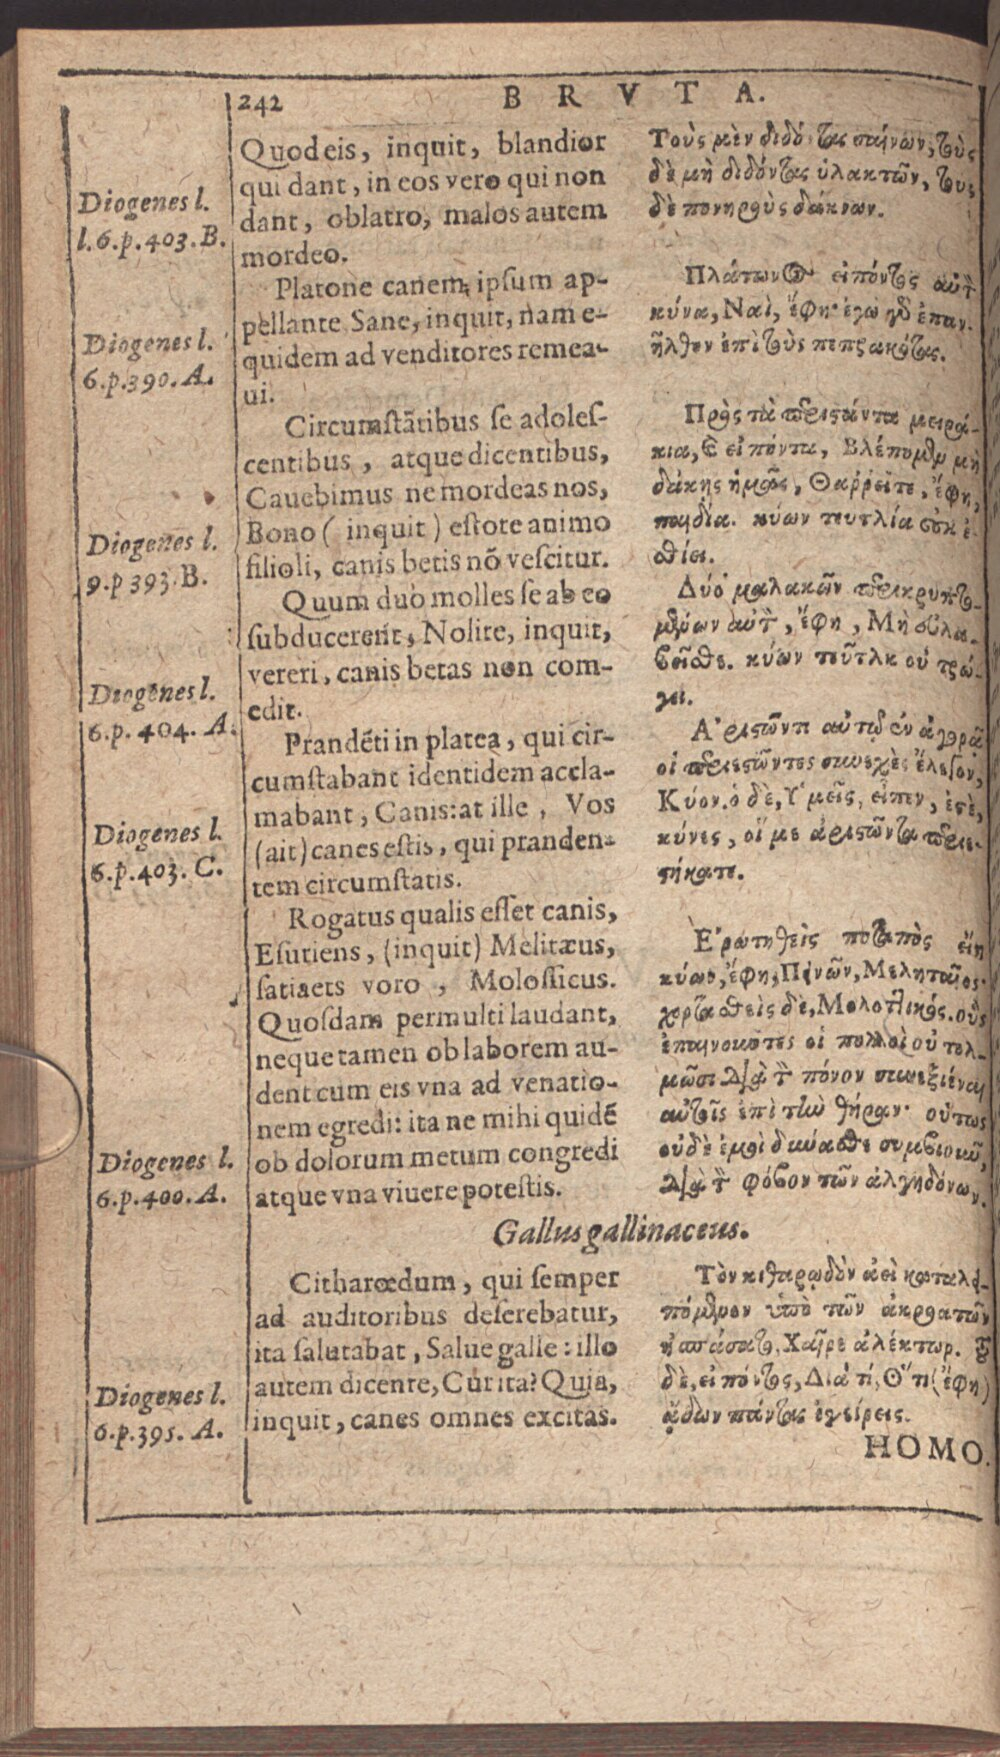 242
B R V T A.
Diogenes l.
l.6.p.403.B.
Diogenes l.
6.p.390.A.
Diogenes l.
9.p 393.B.
Diogenes l.
6.p. 404. A.
Diogenes l.
6.p.403. C.
Diogenes l.
6.p.400.A.
Diogenes l.
6.p.395. A.
Quod eis, inquit, blandior
qui dant, in eos vero qui non
dant, oblatro, malos autem
mordeo.
Platone canem ipſum ap-
pellante Sane, inquit, nam e-
quidem ad venditores remea-
ui.
Circumſtātibus ſe adoleſ-
centibus, atque dicentibus,
Cauebimus ne mordeas nos,
Bono ( inquit ) eſtote animo
filioli, canis betis nō veſcitur.
Quum duo molles ſe ab eo
ſubducerent, Nolite, inquit,
vereri, canis betas non com-
edit.
Prandēti in platea, qui cir-
cumſtabant identidem accla-
mabant, Canis: at ille, Vos
(ait) canes eſtis, qui pranden-
tem circumſtatis.
Rogatus qualis eſſet canis,
Eſutiens, (inquit) Melitæus,
ſatiaets voro, Moloſſicus.
Quoſdam permulti laudant,
neque tamen ob laborem au-
dent cum eis vna ad venatio-
nem egredi: ita ne mihi quidē
ob dolorum metum congredi
atque vna viuere poteſtis.
Τοὺς μὲν διδόντας σαίνων, τοὺς
δὲ μὴ διδόντας ὑλακτῶν, τους
δὲ πονηροὺς δάκνων.
Πλάτωνος εἰπόντος αὐτὸν
κύνα, Ναὶ, ἔφη· ἐγὼ γὸ ἐπαν-
ῆλθον ἐπὶ τοὺς πεπρακότας.
Πρὸς τὰ περιστάντα μειρά-
κια, & εἰπόντα, Βλέπομεν μὴ
δάκῃς ἡμᾶς, Θαῤῥεῖτε, ἔφη,
παιδία. κύων τευτλία οὐκ ἐ-
σθίει.
Δύο μαλακῶν περικρυπτο-
μένων αὐτὸν, ἔφη, Μὴ εὐλα-
βεῖσθε. κύων τεῦτλα οὐ τρώ-
γει.
Ἀριστῶντι αὐτῷ ἐν ἀγορᾷ
οἱ περιεστῶντες συνεχὲς ἔλεγον,
Κύον. ὁ δὲ, Ὑμεῖς, εἶπεν, ἐστὲ,
κύνες, οἵ με ἀριστῶντα περιε-
στήκατε.
Ἐρωτηθεὶς ποταπὸς εἴη
κύων, ἔφη, Πινῶν, Μελιταῖος·
χορτασθεὶς δὲ, Μολοττικός. οὓς
ἐπαινοῦντες οἱ πολλοὶ οὐ τολ-
μῶσι διὰ τὸν πόνον συνεξιέναι
αὐτοῖς ἐπὶ τὴν θήραν· οὕτως
οὐδὲ ἐμοὶ δύνασθε συμβιοῦν,
διὰ τὸν φόβον τῶν ἀλγηδόνων.
Gallus gallinaceus.
Citharœdum, qui ſemper
ad auditoribus deſerebatur,
ita ſalutabat, Salue galle: illo
autem dicente, Cur ita? Quia,
inquit, canes omnes excitas.
Τὸν κιθαρῳδὸν ἀεὶ καταλει-
πόμενον ὑπὸ τῶν ἀκροατῶν
ἠσπάσατο, Χαῖρε ἀλέκτωρ. τοῦ
δὲ, εἰπόντος, Διὰ τί, Ὅτι (ἔφη)
ᾄδων πάντας ἐγείρεις.
HOMO.